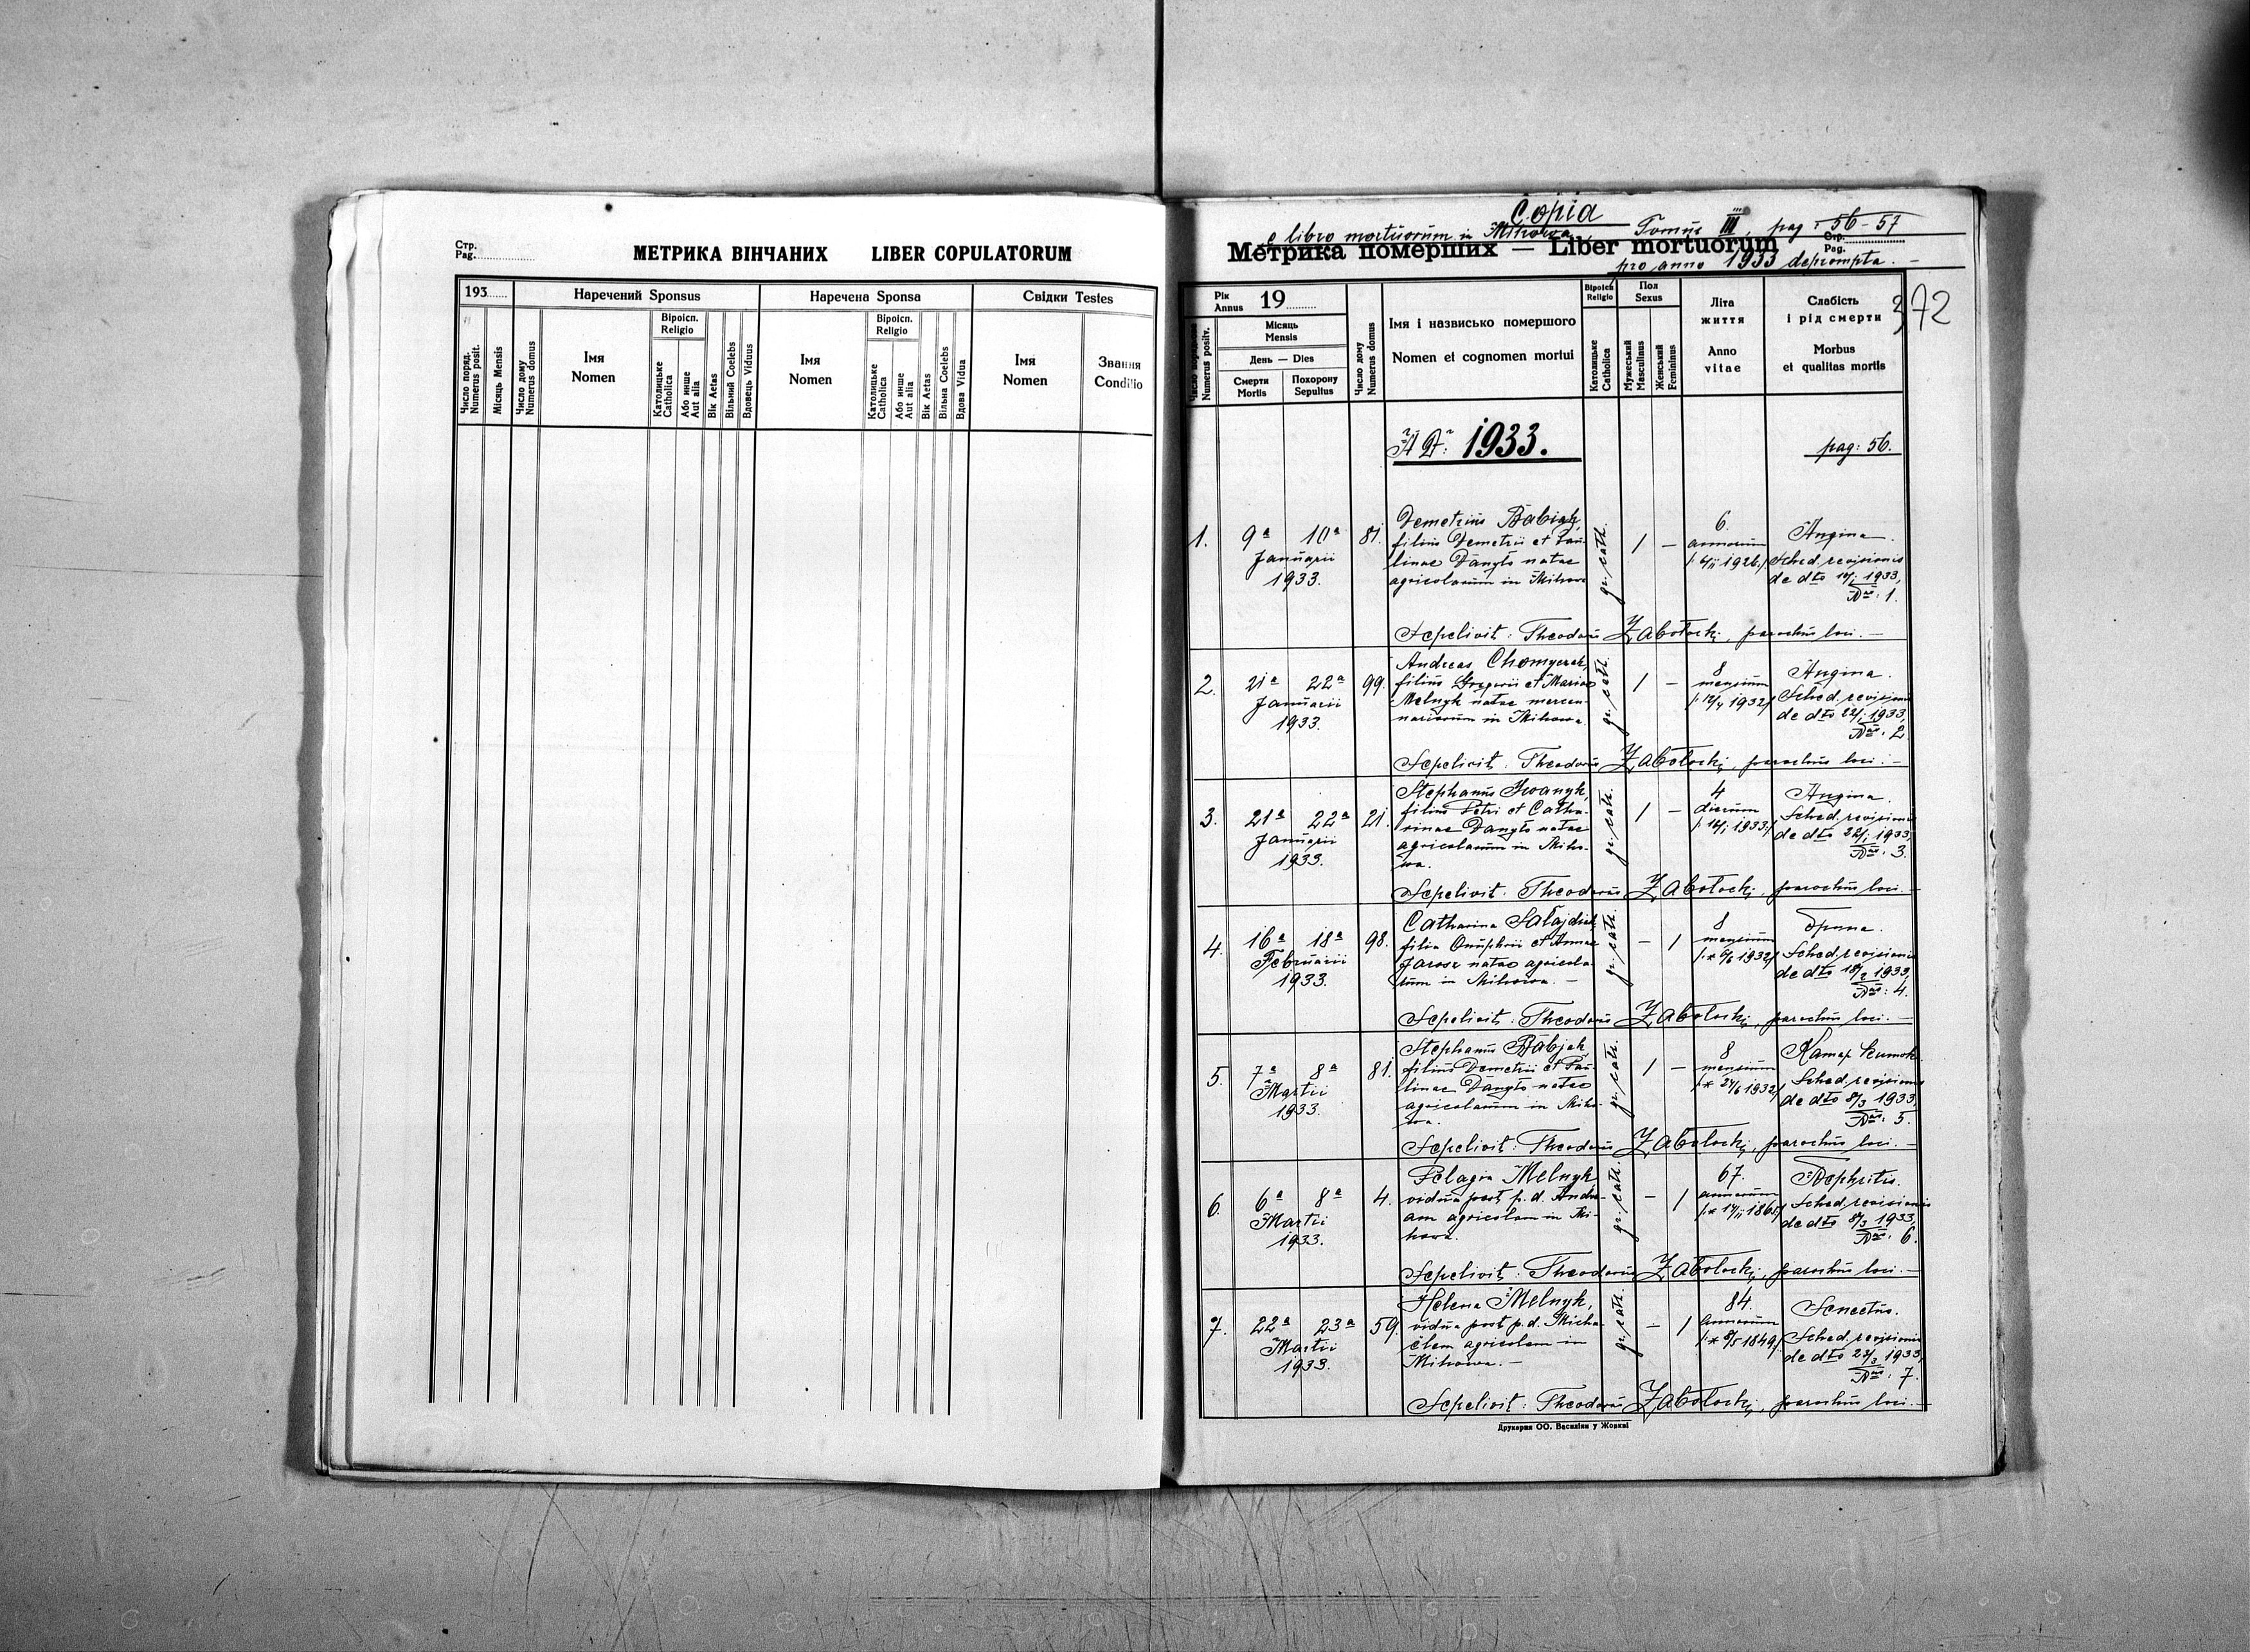 Стр.
Pag.
МЕТРИКА ВІНЧАНИХ LIBER COPULATORUM
193
Наречений Sponsus
Наречена Sponsa
Свідки Testes
Число поряд.
Numerus posit.
Місяць Mensis
Число дому
Numerus domus
Імя
Nomen
Віроісп.
Religio
Католицьке
Catholica
Або инше
Aut alia
Вік Aetas
Вільний Coelebs
Вдовець Viduus
Імя
Nomen
Віроісп.
Religio
Католицьке
Catholica
Або инше
Aut alia
Вік Aetas
Вільна Coelebs
Вдова Vidua
Імя
Nomen
Звання
Conditio
Copia
e libro mortuorum in Mihowa, Tomus III, pag: 56-57
Метрика померших — Liber mortuorum
Стр.
Pag.
pro anno 1933 deprompta. —
372
Рік
Annus 19
Numerus posit.
Місяць
Mensis
День — Dies
Смерти
Mortis
Похорону
Sepultus
Число дому
Numerus domus
Імя і назвисько помершого
Nomen et cognomen mortui
Віроісп
Religio
Католицьке
Catholica
Пол
Sexus
Мужеський
Masculinus
Женський
Femininus
Літа
життя
Anno
vitae
Слабість
і рід смерти
Morbus
et qualitas mortis
A D: 1933.
pag: 56.
1.
9a 10a
Januarii
1933.
81.
Demetrius Babiak,
filius Demetrii et Pau-
linae Dangło natae
agricolarum in Mihowa
gr. cath.
1 —
6.
annorum
1926
Angina.
Sched. revisionis
de dto 10/I 1933,
Nro: 1.
Sepelivit: Theodorus Zabołocki, parochus loci. —
2.
21a 22a
Januarii
1933.
99.
Andreas Chomyczak,
filius Gregorii et Mariae
Melnyk natae mercen-
nariorum in Mihowa.
gr. cath.
1 —
8
mensium
1932
Angina.
Sched. revisionis
de dto 22/I 1933,
Nro: 2.
Sepelivit: Theodorus Zabołocki, parochus loci. —
3.
21a 22a
Januarii
1933.
21.
Stephanus Iwanyk,
filius Petri et Catha-
rinae Dangło natae
agricolarum in Miho-
wa.
gr. cath.
1 —
4
dierum
1933
Angina.
Sched. revisionis
de dto 22/I 1933,
Nro: 3.
Sepelivit: Theodorus Zabołocki, parochus loci. —
4.
16a 18a
Februarii
1933.
98.
Catharina Sałajdiak
filia Onuphrii et Annae
Jarosz natae agricola-
rum in Mihowa. —
gr. cath.
— 1
8
mensium
1932
Sched. revisionis
de dto 18/2 1933,
Nro: 4.
Sepelivit: Theodorus Zabołocki, parochus loci. —
5.
7a 8a
Martii
1933.
81.
Stephanus Babjak,
filius Demetrii et Pau-
linae Dangło natae
agricolarum in Miho-
wa.
gr. cath.
1 —
8
mensium
1932
Sched. revisionis
de dto 8/3 1933,
Nro: 5.
Sepelivit: Theodorus Zabołocki, parochus loci. —
6.
6a 8a
Martii
1933.
4.
Pelagia Melnyk
vidua post p. d. Andre-
am agricolam in Mi-
howa.
gr. cath.
— 1
67.
annorum
Nephritis.
Sched. revisionis
de dto 8/3 1933,
Nro: 6.
Sepelivit: Theodorus Zabołocki, parochus loci. —
7.
22a 23a
Martii
1933.
59.
Helena Melnyk,
vidua post p. d. Micha-
ëlem agricolam in
Mihowa. —
gr. cath.
— 1
84.
annorum
1849
Senectus.
Sched. revisionis
de dto 23/3 1933,
Nro: 7.
Sepelivit: Theodorus Zabołocki, parochus loci. —
Друкарня ОО. Василіян у Жовкві